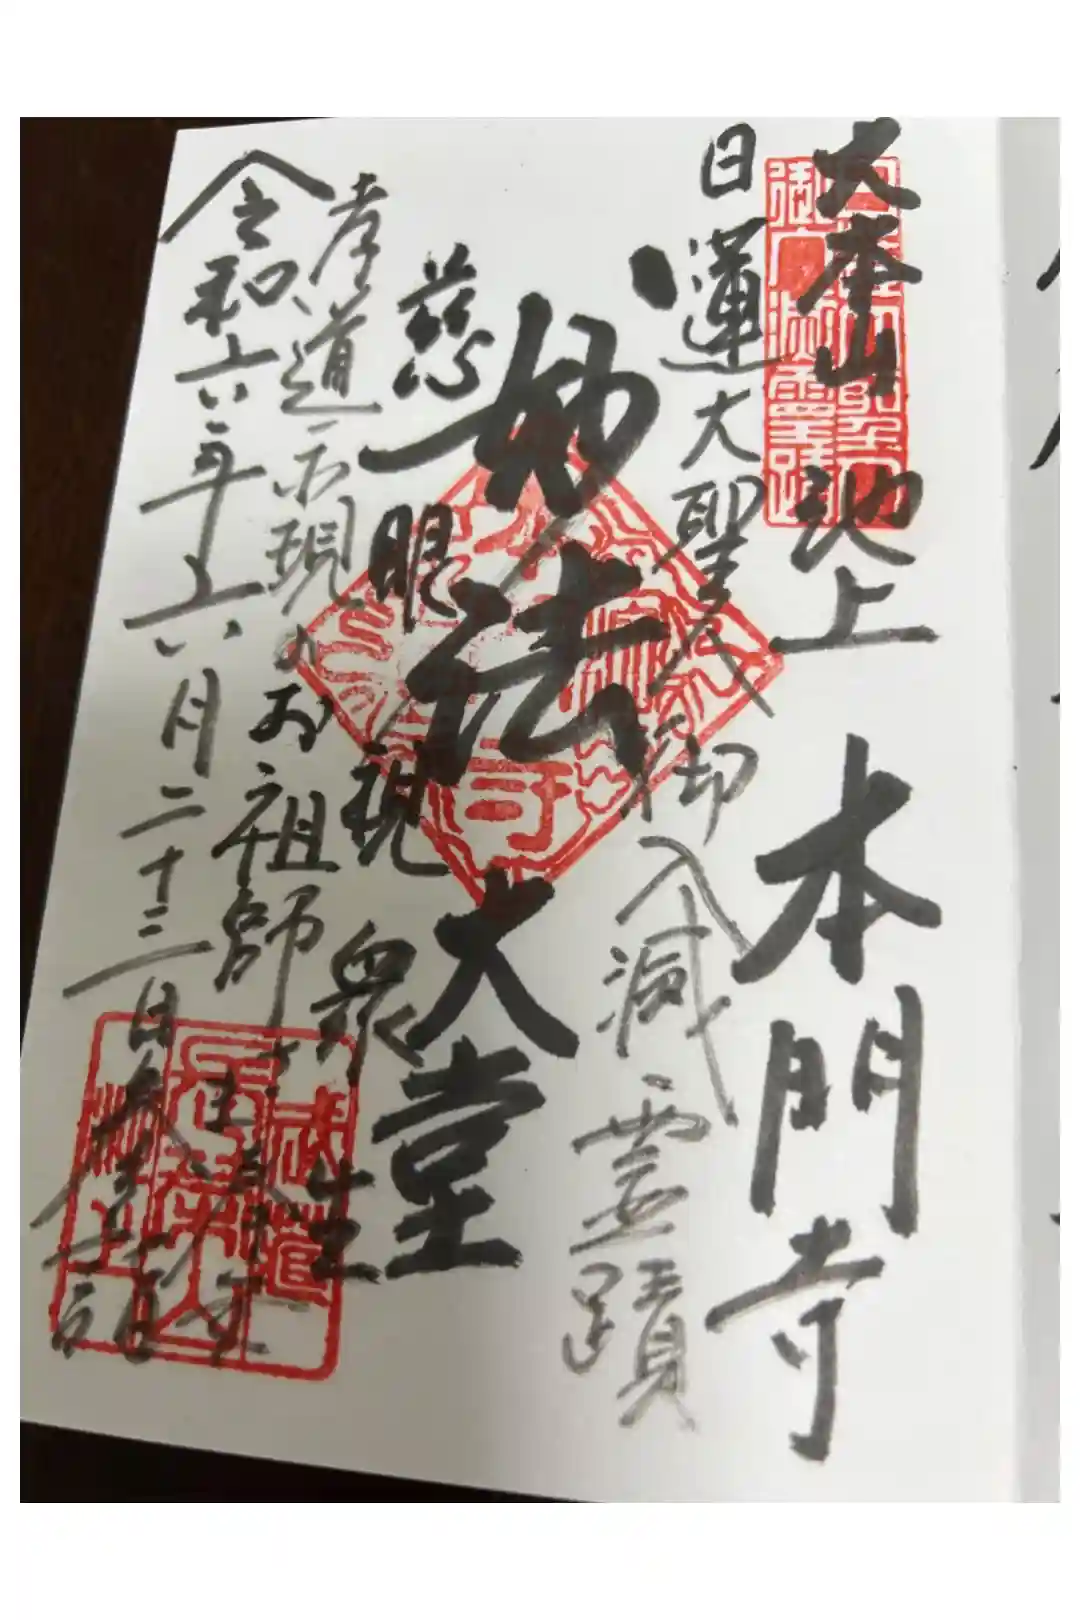 大本山 池上 本門寺
日蓮大聖人御入滅霊蹟
妙法
大堂
慈眼視衆生
孝道示現のお祖師さま
令和六年六月二十三日参詣
武蔵